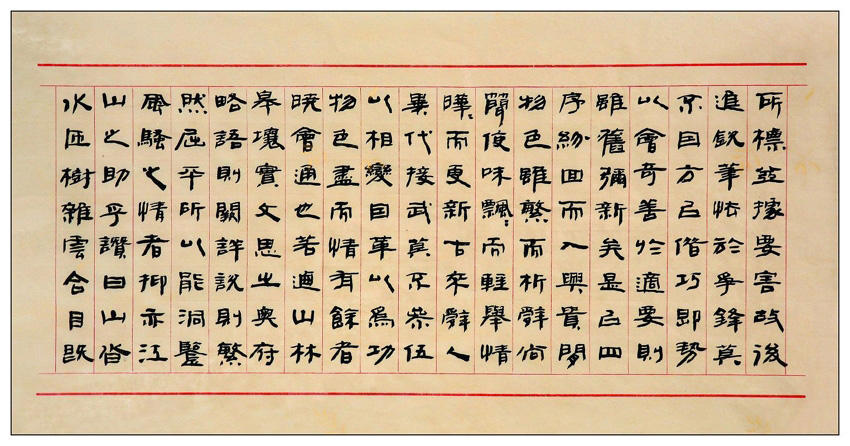 所標竝據要害故後
進銳筆怯於爭鋒莫
不因方以借巧即勢
以會奇善於適要則
雖舊彌新矣是以四
序紛回而入興貴閑
物色雖繁而析辭尚
簡使味飄〻而輕舉情
曄〻而更新古來辭人
異代接武莫不參伍
以相變因革以爲功
物色盡而情有餘者
曉會通也若迺山林
皋壤實文思之奧府
略語則闕詳說則繁
然屈平所以能洞鑒
風騷之情者抑亦江
山之助乎讚曰山沓
水匝樹雜雲合目既